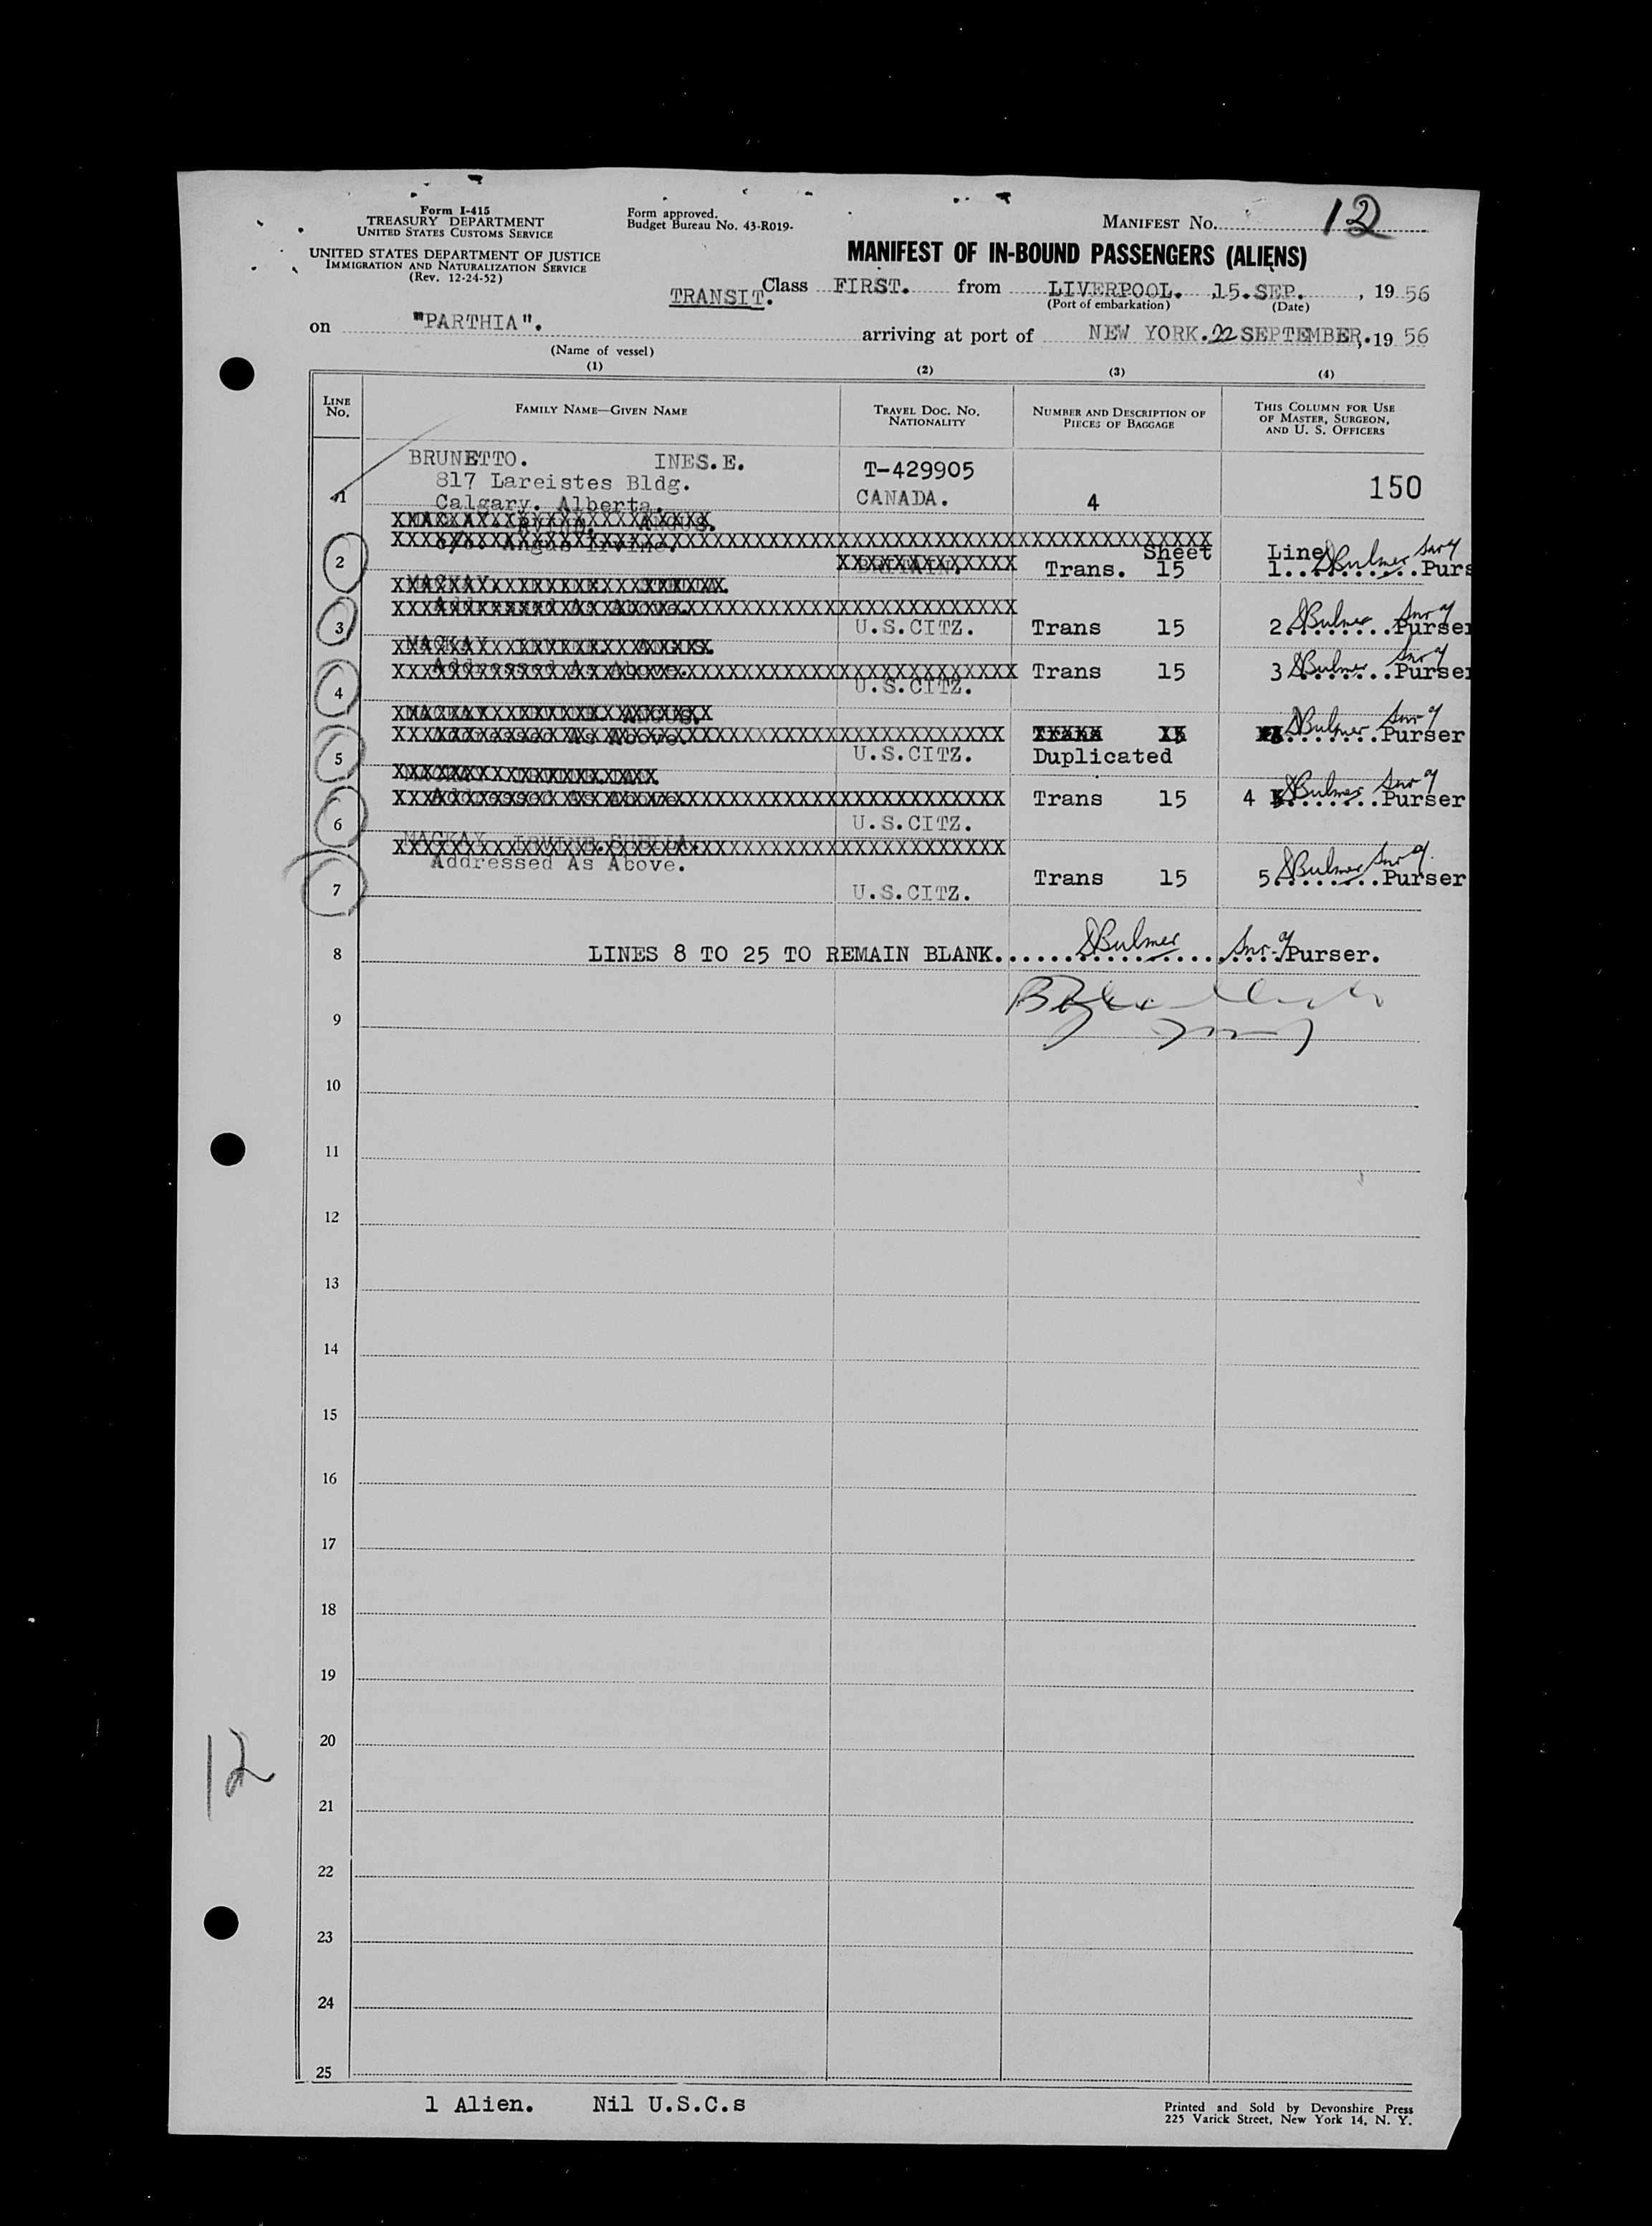 Form I-415
TREASURY DEPARTMENT
UNITED STATES CUSTOMS SERVICE
UNITED STATES DEPARTMENT OF JUSTICE
IMMIGRATION AND NATURALIZATION SERVICE
(Rev. 12-24-52)
Form approved.
Budget Bureau No. 43-R019-
MANIFEST No. 12
MANIFEST OF IN-BOUND PASSENGERS (ALIENS)
TRANSIT. Class FIRST. from LIVERPOOL. 15. SEP. , 19 56
(Port of embarkation) (Date)
on "PARTHIA". arriving at port of NEW YORK. 22 SEPTEMBER, .19 56
(Name of vessel)
(1) (2) (3) (4)
LINE No. FAMILY NAME—GIVEN NAME TRAVEL DOC. NO. NATIONALITY NUMBER AND DESCRIPTION OF PIECES OF BAGGAGE THIS COLUMN FOR USE OF MASTER, SURGEON, AND U. S. OFFICERS
BRUNETTO. INES.E. T-429905
817 Lareistes Bldg. 150
1 Calgary. Alberta. CANADA. 4
MACKAY ANGUS.
c/o. Angus Irvine. Sheet Line
2 BRITAIN. Trans. 15 1 Bulmer Purs
MACKAY
Addressed As Above.
3 U.S.CITZ. Trans 15 2 Bulmer Purser
MACKAY
Addressed As Above. Trans 15 3 Bulmer Purser
4 U.S.CITZ.
MACKAY ANGUS.
Addressed As Above. Trans 15 Bulmer Purser
5 U.S.CITZ. Duplicated
Addressed As Above. Trans 15 4 Bulmer Purser
6 U.S.CITZ.
MACKAY IRVINE.SHEILA.
Addressed As Above.
7 U.S.CITZ. Trans 15 5 Bulmer Purser
8 LINES 8 TO 25 TO REMAIN BLANK. Bulmer Purser.
9
10
11
12
13
14
15
16
17
18
19
20
12
21
22
23
24
25
1 Alien. Nil U.S.C.s
Printed and Sold by Devonshire Press
225 Varick Street, New York 14, N. Y.